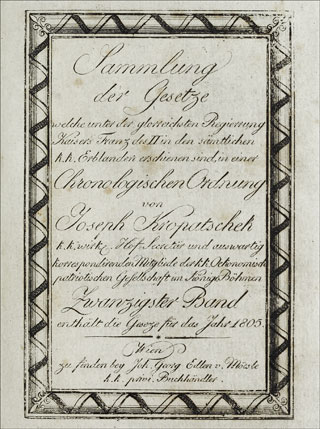 Sammlung
der Gesetze
welche unter der glorreichsten Regierung
Kaisers Franz des II in den sämtlichen
k.k. Erblanden erschienen sind, in einer
Chronologischen Ordnung
von
Joseph Kropatschek
k.k. wirkl. Hof-Secretär und auswärtig
korrespondirenden Mitgliede der k.k. Oekonomisch
patriotischen Gesellschaft im Königr. Böhmen
Zwanzigster Band
enthält die Gesetze für das Jahr 1805.
Wien
zu finden bey Joh. Georg Edlen v. Mösle
k.k. privi. Buchhändler.